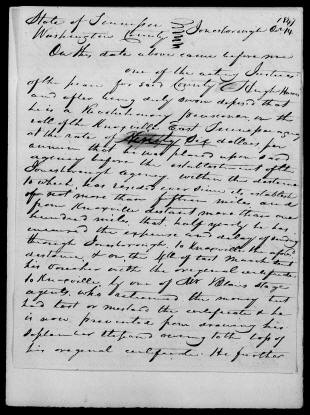 State of Tennessee
Washington County
Jonesborough Oct 14 1841
On this date above came before me
one of the acting Justices
of the peace for said County Hugh Harris
and after being duly sworn deposed that
he is a Revolutionary pensioner, on the
roll of the Knoxville East Tennessee agency
at the rate of Six dollars per
annum that he was placed upon said
agency before the establishment of the
Jonesborough agency within the distance
to which, has resided ever since its establish
of not more than fifteen miles and
from Knoxville distant more than one
hundred miles that half yearly he has
incurred the expense and delay of sending
through Jonesborough to Knoxville the afsd
distance, & on the 4th of last March sent
his voucher with the original certificate
to Knoxville by one of Mr Blairs Stage
agents who returned the money but
had lost or mislaid the certificate & he
is now prevented from drawing his
September stipend owing to the loss of
his original certificate. He further